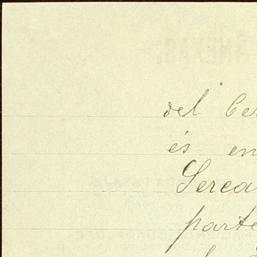 del Cer
és en
Serca
parte